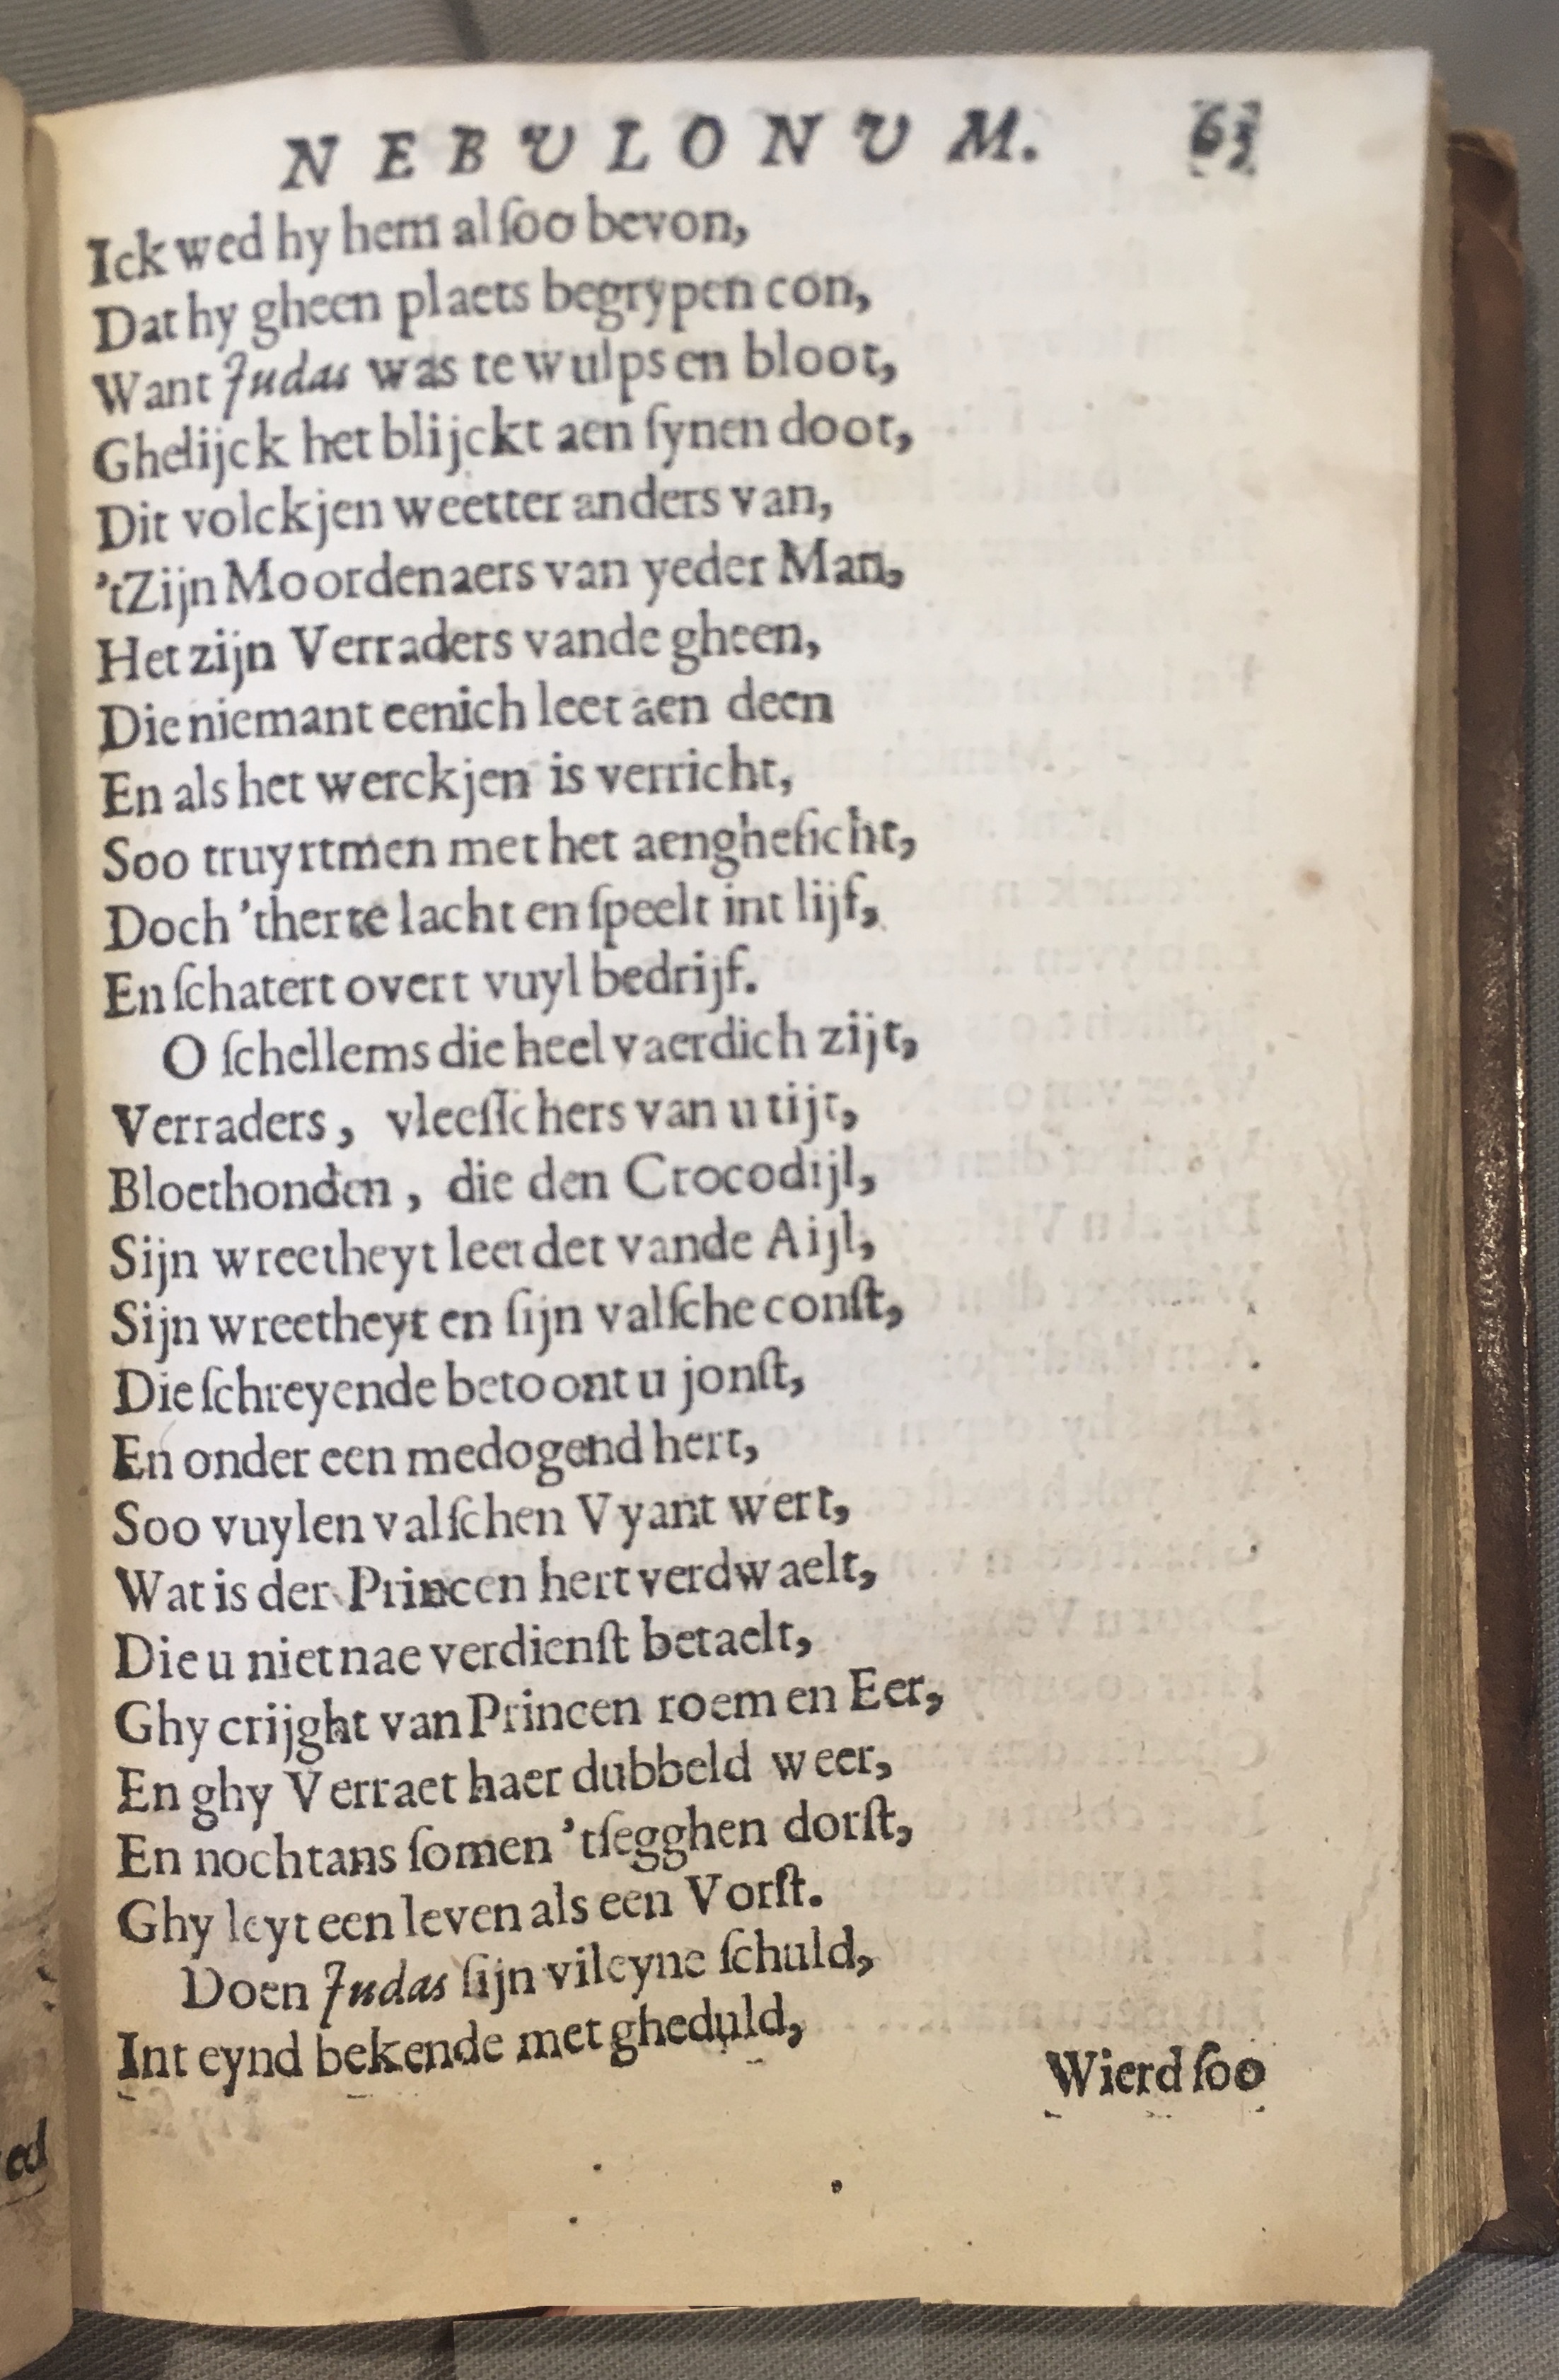 NEBULONUM. 63
Ick wed hy hem al ſoo bevon,
Dat hy gheen plaets begrypen con,
Want Judas was te wulps en bloot,
Ghelijck het blijckt aen ſynen doot,
Dit volckjen weetter anders van,
'tZijn Moordenaers van yeder Man,
Het zijn Verraders vande gheen,
Die niemant eenich leet aen deen
En als het werckjen is verricht,
Soo truyrtmen met het aengheſicht,
Doch 'therte lacht en ſpeelt int lijf,
En ſchatert overt vuyl bedrijf.
O ſchellems die heel vaerdich zijt,
Verraders, vleeſſchers van u tijt,
Bloethonden, die den Crocodijl,
Sijn wreetheyt leerdet vande Aijl,
Sijn wreetheyt en ſijn valſche conſt,
Die ſchreyende betoont u jonſt,
En onder een medogend hert,
Soo vuylen valſchen Vyant wert,
Wat is der Princen hert verdwaelt,
Die u niet nae verdienſt betaelt,
Ghy crijght van Princen roem en Eer,
En ghy Verraet haer dubbeld weer,
En nochtans ſomen 'tſegghen dorſt,
Ghy leyt een leven als een Vorſt.
Doen Judas ſijn vileyne ſchuld,
Int eynd bekende met gheduld,
Wierd ſoo
ed